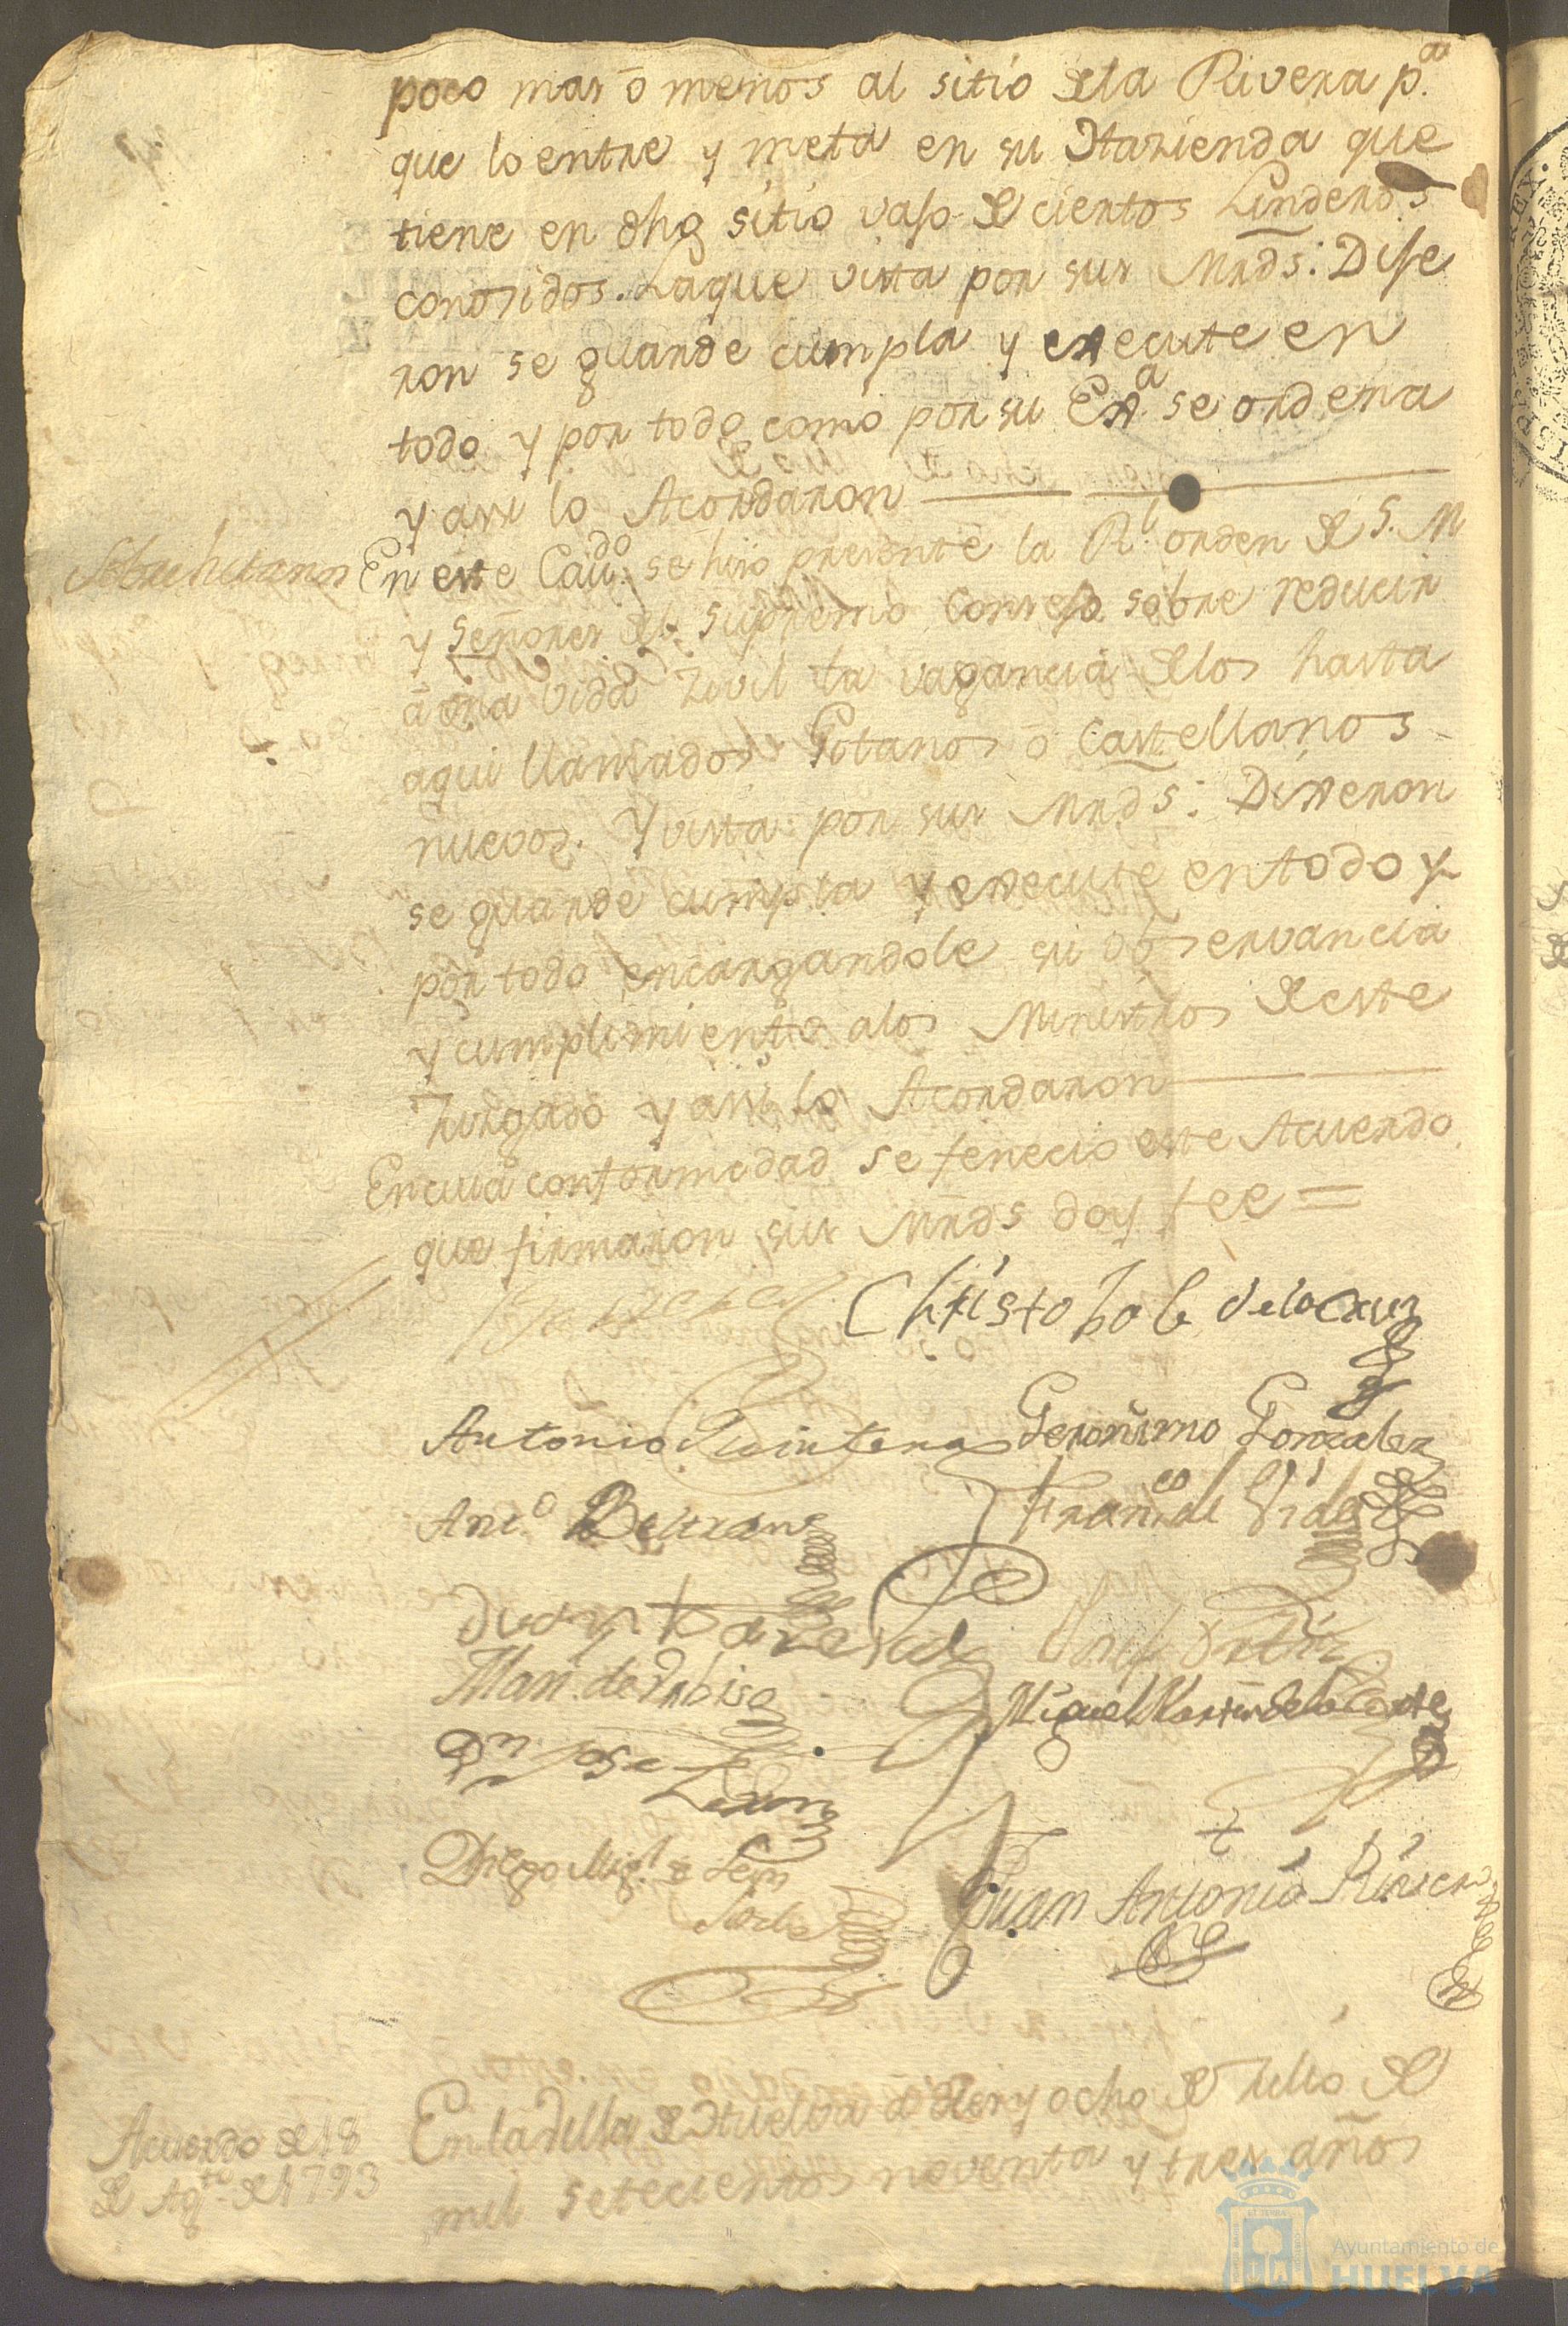 poco mas ō menos al sitio dela Rivera p.ª
que lo entre y meta en su Hazienda que
tiene en dhõ sitio vaso de ciertos Linderos
conosidos. La que vista por sus Mrds: Dije
ron se guarde cumpla y execute en
todo y por todo como por su Exª se ordena
y assi lo Acordaron
Sobre hitanos
En este Cavdo. se hiso presente la Rl. orden de S. M
y Señores del Supremo Consejo sobre reducir
á una vida Zivil la vagancia delos hasta
aqui llamados Gitanos ó Castellanos
nuevos. Y vista por sus Mrds: Dixeron
se guarde cumpla y execute en todo y
por todo encargandole su observancia
y cumplimiento alos Ministros de este
Jusgado y assi lo Acordaron
En cuia conformidad se fenecio este Acuerdo
que firmaron sus Mrds doy fee =
Christobal de la Cruz
Antonio Quintero Geronimo Gonzalez
Antº Beltrane Franco del Vide
Juan
Man. de Miguel Martin de la Corte
Dn Jose
Diego Migl. de Leon
Sorla
Juan Antonio Rivera
Acuerdo de 18
de Agto. de 1793
En la Villa de Huelva a dies y ocho de Julio de
mil setecientos noventa y tres años
Ayuntamiento de
HUELVA